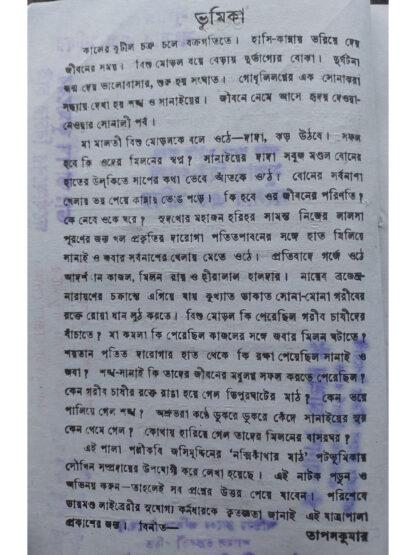 ভূমিকা
কালের কুটীল চক্র চলে বক্রগতিতে। হাসি-কান্নায় ভরিয়ে দেয়
জীবনের সময়। বিশু মোড়ল বয়ে বেড়ায় দুর্ভাগ্যের বোঝা। দুর্ঘটনা
জন্ম দেয় ভালোবাসার, শুরু হয় সংঘাত। গোধূলিলগ্নের এক সোনাঝরা
সন্ধ্যায় দেখা হয় শঙ্খ ও সানাইয়ের। জীবনে নেমে আসে হৃদয় দেওয়া-
নেওয়ার সোনালী পর্ব।
মা মালতী বিশু মোড়লকে বলে ওঠে—দাদা, ঝড় উঠবে। সফল
হবে কি ওদের মিলনের স্বপ্ন? সানাইয়ের দাদা সবুজ মণ্ডল বোনের
হাতের উল্‌কিতে সাপের কথা ভেবে আঁতকে ওঠে। বোনের সর্বনাশা
খেলায় ভয় পেয়ে কান্নায় ভেঙে পড়ে। কি হবে ওর জীবনের পরিণতি?
কে নেবে ওকে ঘরে? সুদখোর মহাজন হরিহর সামন্ত নিজের লালসা
পূরণের জন্য খল প্রকৃতির দারোগা পতিতপাবনের সঙ্গে হাত মিলিয়ে
সানাই ও জবার সর্বনাশের খেলায় মেতে ওঠে। প্রতিবাদে গর্জে ওঠে
আদর্শবান কাজল, মিলন রায় ও হীরালাল হালদার। নায়েব ব্রজেন্দ্র-
নারায়ণের চক্রান্তে এগিয়ে যায় কুখ্যাত ডাকাত সোনা-মোনা গরীবের
রক্তে রোয়া ধান লুঠ করতে। বিশু মোড়ল কি পেরেছিল গরীব চাষীদের
বাঁচাতে? মা কমলা কি পেরেছিল কাজলের সঙ্গে জবার মিলন ঘটাতে?
শয়তান পতিত দারোগার হাত থেকে কি রক্ষা পেয়েছিল সানাই ও
জবা? শঙ্খ-সানাই কি তাদের জীবনের মধুলগ্ন সফল করতে পেরেছিল?
কেন গরীব চাষীর রক্তে রাঙা হয়ে গেল তিপুরঘাটের মাঠ? কেন ভয়ে
পালিয়ে গেল শঙ্খ? অশ্রুভরা কণ্ঠে ডুকরে ডুকরে কেঁদে সানাইয়ের সুর
কেন থেমে গেল? কোথায় হারিয়ে গেল তাদের মিলনের বাসরঘর?
এই পালা পল্লীকবি জসিমুদ্দিনের 'নক্সিকাঁথার মাঠ' পটভূমিকায়
সৌখিন সম্প্রদায়ের উপযোগী করে লেখা হয়েছে। এই নাটক পড়ুন ও
অভিনয় করুন—তাহলেই সব প্রশ্নের উত্তর পেয়ে যাবেন। পরিশেষে
ডায়মণ্ড লাইব্রেরীর সুযোগ্য কর্মধারকে কৃতজ্ঞতা জানাই এই যাত্রাপালা
প্রকাশের জন্য। বিনীত—
তাপসকুমার